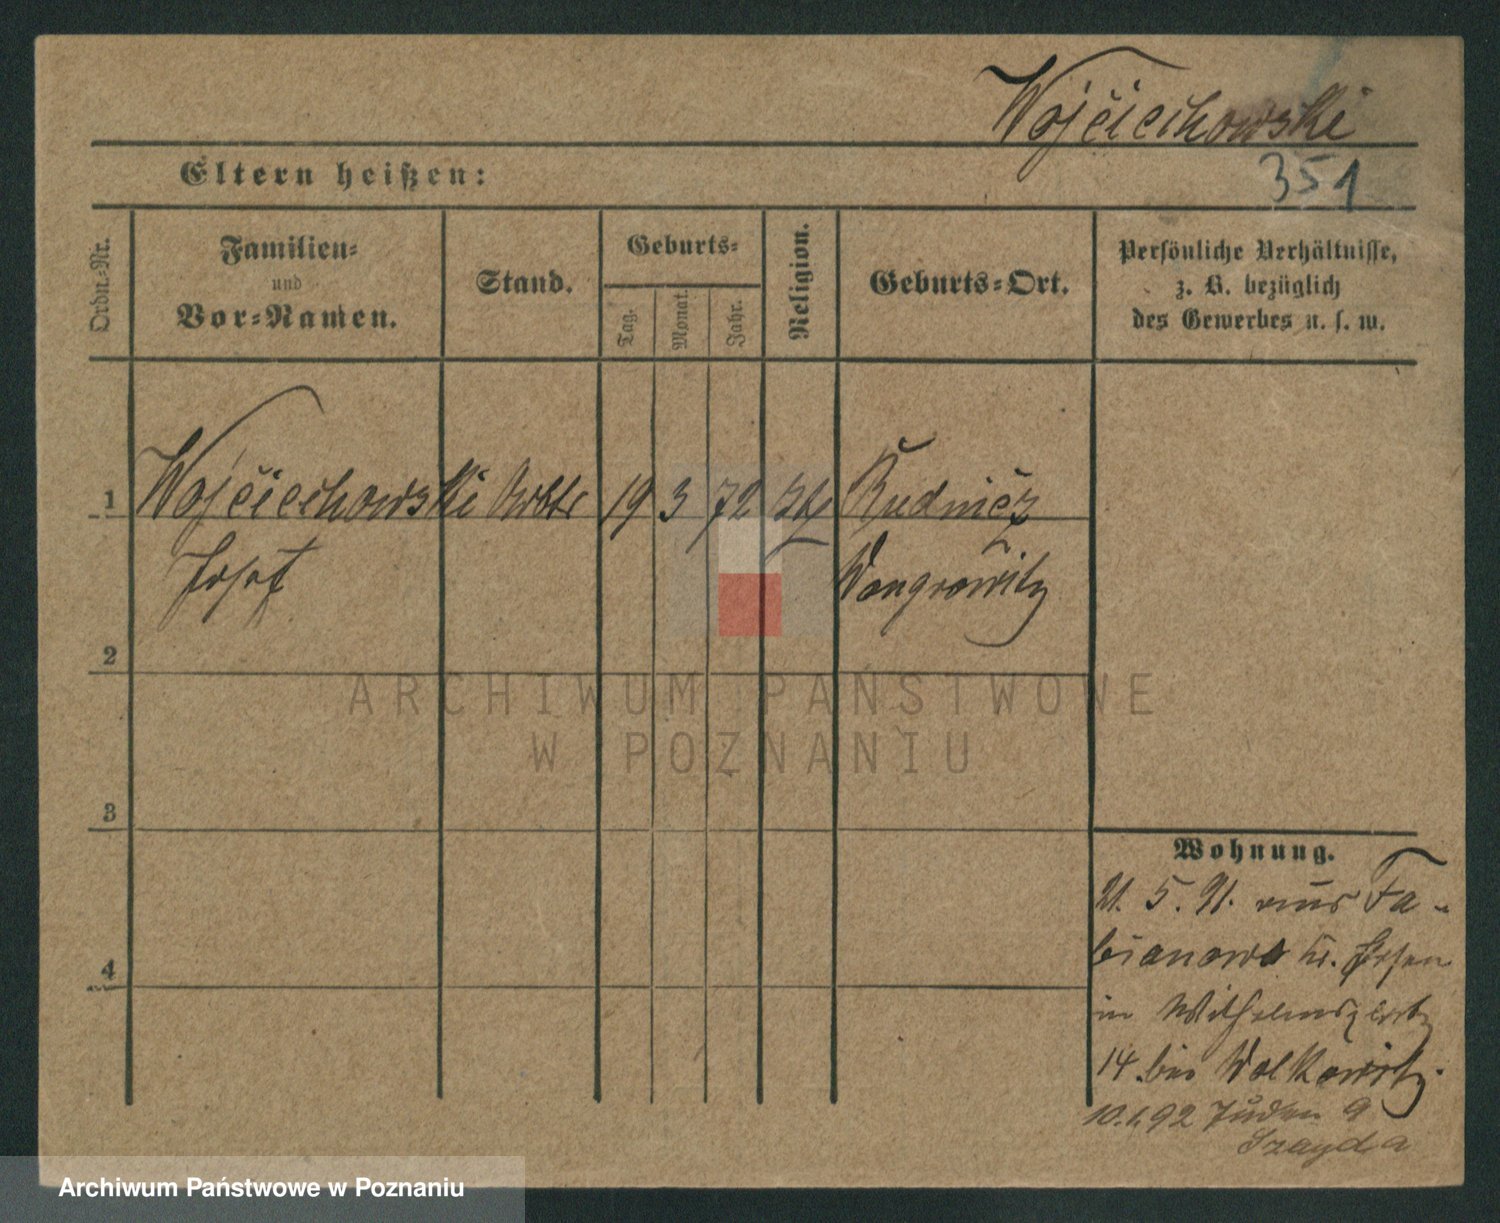 Wojciechowski
Eltern heißen:
351
Ordn.-Nr.
Familien-
und
Vor-Namen.
Stand.
Geburts-
Tag.
Monat.
Jahr.
Religion.
Geburts-Ort.
Persönliche Verhältnisse,
z. B. bezüglich
des Gewerbes u. s. w.
1
Wojciechowski Arbtr 19 3 72 kth Rudnicz
Josef
Wongrowitz
2
3
4
Wohnung.
21. 5. 91. aus Fa-
bianowo Kr. Posen
in Wilhelmsplatz
14 bei Wolkowitz.
10.1.92 Juden 9
Szayda
ARCHIWUM PAŃSTWOWE
W POZNANIU
Archiwum Państwowe w Poznaniu